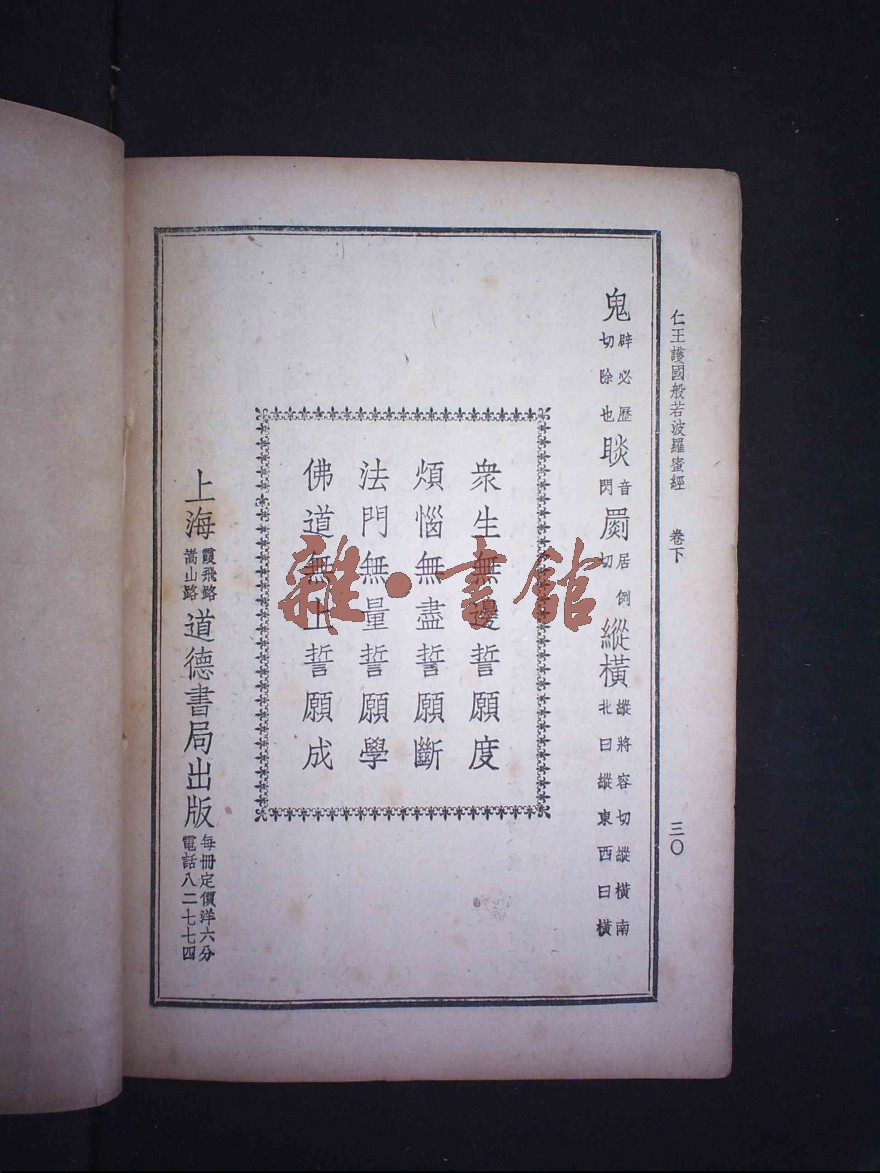 仁王護國般若波羅蜜經 卷下 三〇
鬼 辟必歷切除也 睒 音閃 罽 居例切 縱橫 縱將容切縱橫南北曰縱東西曰橫
衆生無邊誓願度
煩惱無盡誓願斷
法門無量誓願學
佛道無上誓願成
上海 霞飛路嵩山路 道德書局出版 每冊定價洋六分 電話八二七七四
雜·書館